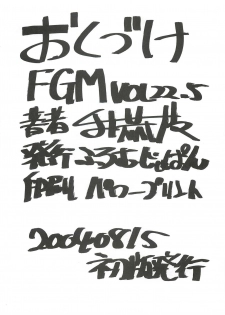 おくづけ
FGM VOL22.5
著者
発行 ふろむじゃぱん
印刷 パワープリント
20040815
初版発行